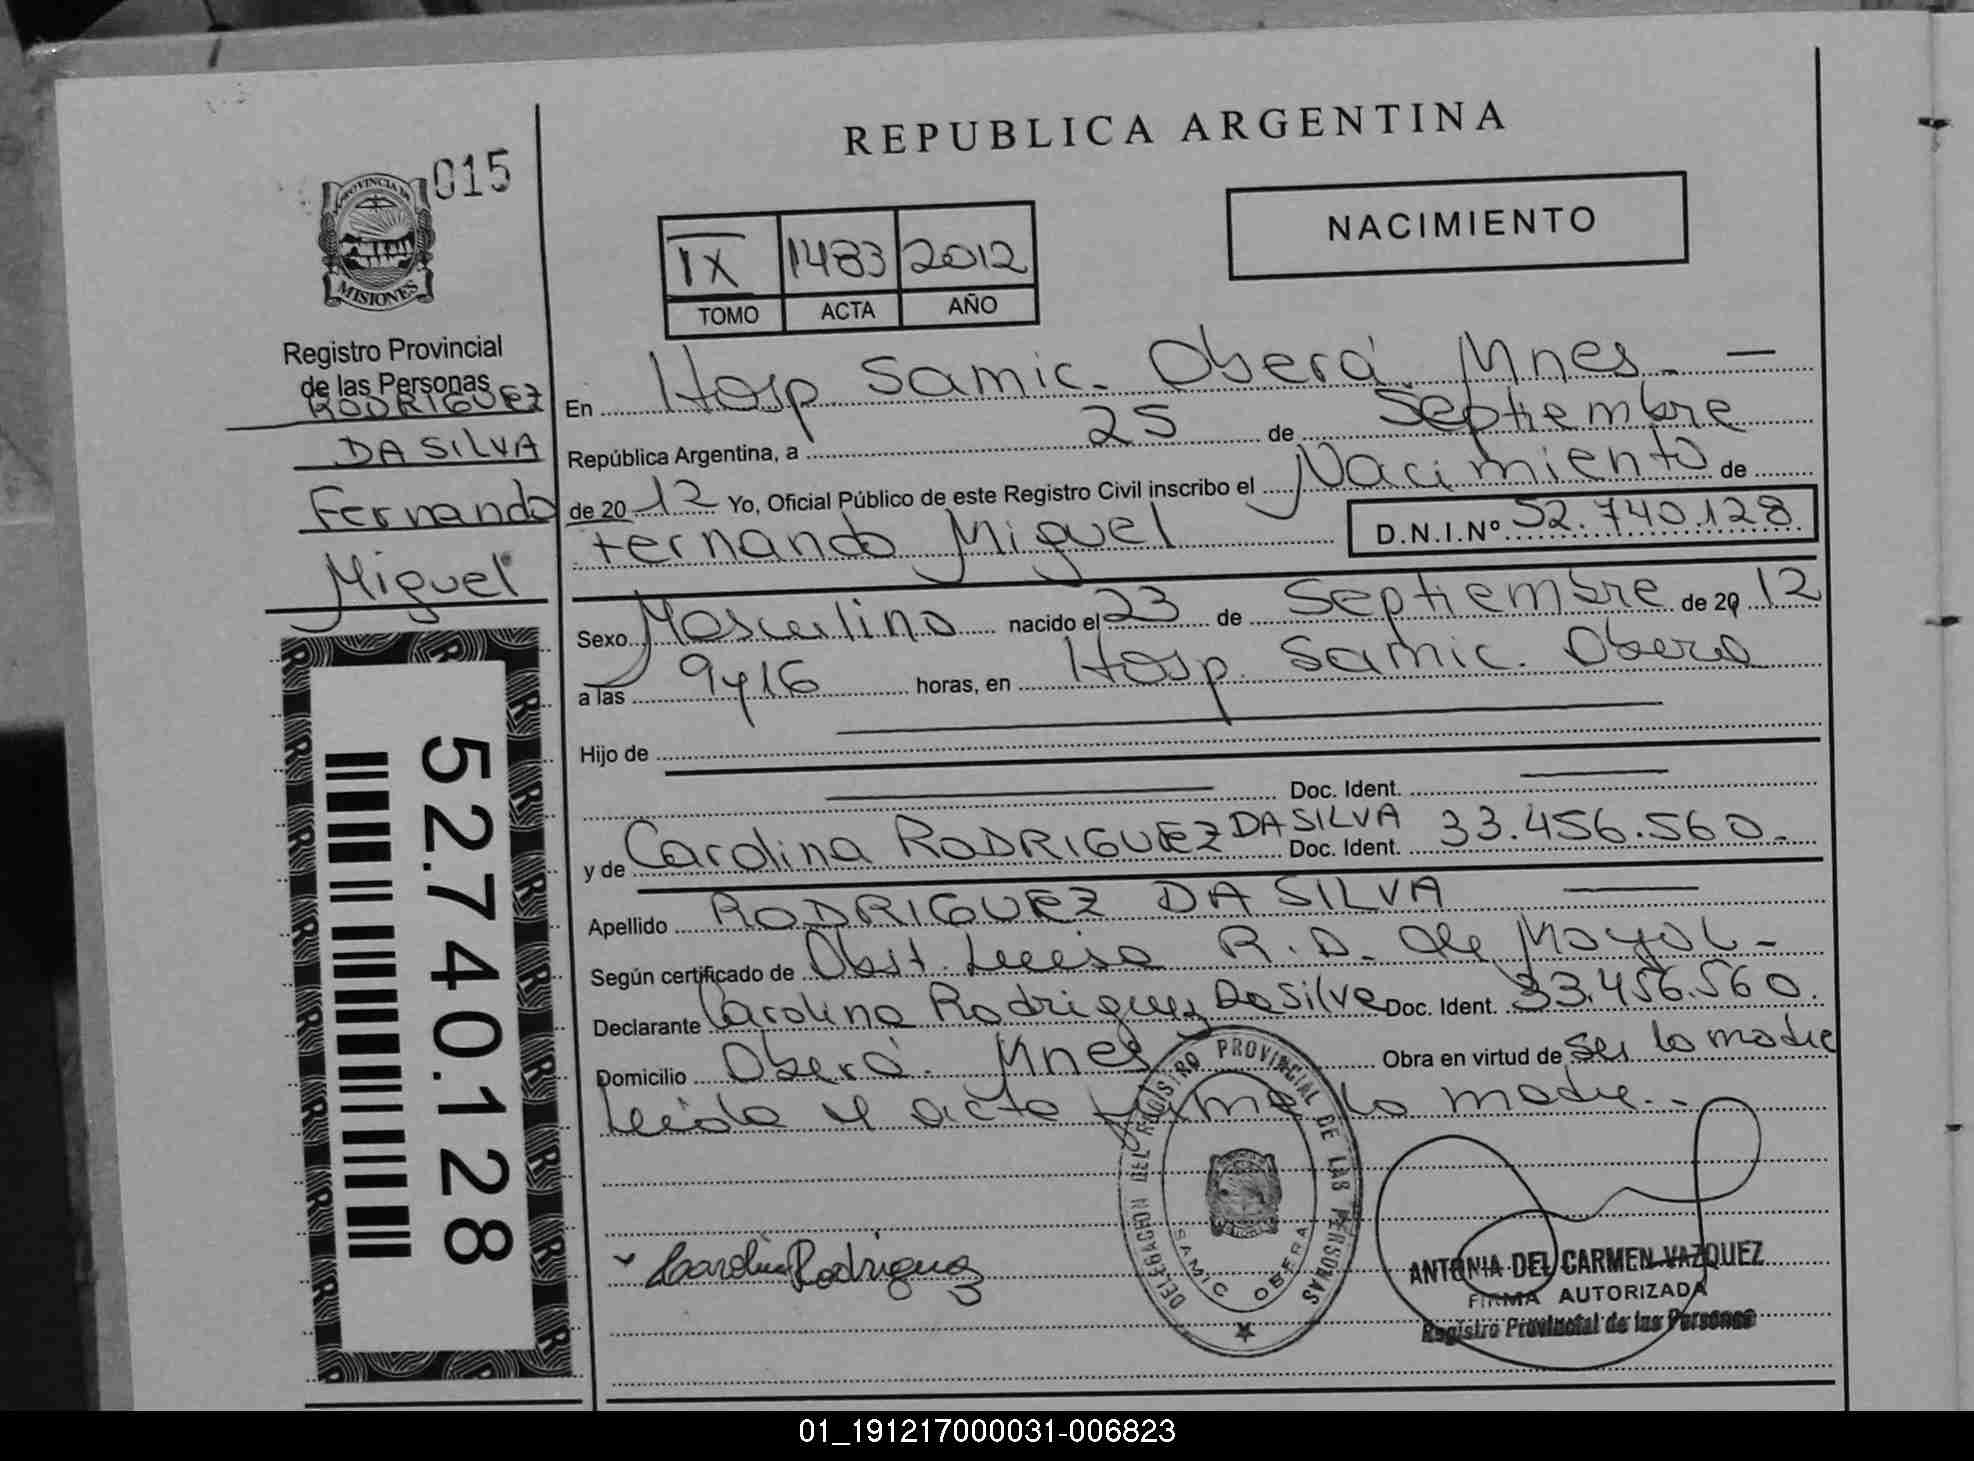 015
PROVINCIA DE
MISIONES
Registro Provincial
de las Personas
RODRIGUEZ
DA SILVA
Fernando
Miguel
52.740.128
REPUBLICA ARGENTINA
NACIMIENTO
IX 1483 2012
TOMO ACTA AÑO
En Hosp Samic. Oberá. Mnes. —
República Argentina, a 25 de Septiembre
de 20 12 Yo, Oficial Público de este Registro Civil inscribo el Nacimiento de
Fernando Miguel D.N.I.Nº 52.740.128
Sexo Masculino nacido el 23 de Septiembre de 20 12
a las 9 y 16 horas, en Hosp. Samic. Obera
Hijo de
Doc. Ident.
y de Carolina RODRIGUEZ DA SILVA Doc. Ident. 33.456.560.
Apellido RODRIGUEZ DA SILVA
Según certificado de Obst. Luisa R. D. de Moyol-
Declarante Carolina Rodriguez Da Silva Doc. Ident. 33.456.560.
Domicilio Oberá. Mnes Obra en virtud de ser la madre
Leida el acta firma la madre.-
DELEGACION DEL REGISTRO PROVINCIAL DE LAS PERSONAS
SAMIC OBERA
Carolin Rodriguez
ANTONIA DEL CARMEN VAZQUEZ
FIRMA AUTORIZADA
Registro Provincial de las Personas
01_191217000031-006823